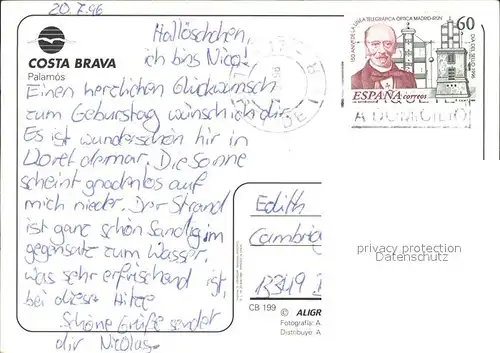 20.7.96
Hallöschchen,
ich bins Nico!
COSTA BRAVA
Palamós
Einen herzlichen Glückwunsch
zum Geburstag wünsch ich dir.
Es ist wunderschön hir in
Lloret demar. Die Sonne
scheint gnadenlos auf
mich nieder. Der Strand
ist ganz schön Sandig, im
gegensatz zum Wasser,
was sehr erfrischend ist,
bei dieser Hitze
Schöne Grüße sendet
dir Nicolas
150 ANIV. DE LA LINEA TELEGRAFICA OPTICA MADRID-IRUN
60
DIA DEL SELLO 1996
ESPAÑA correos
A DOMICILIO
Edith
Cambrig
13349
privacy protection
Datenschutz
CB 199 © ALIGR
Fotografía: A.
Distribuye: A.